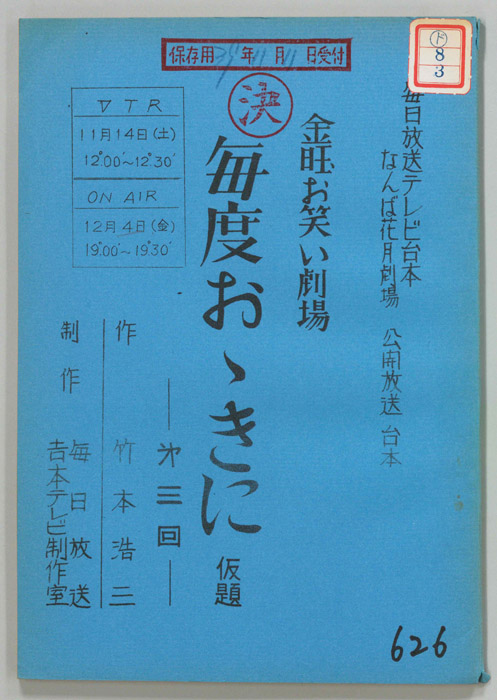 保存用39年11月11日受付
ド
8
3
決
毎日放送テレビ台本
なんば花月劇場 公開放送 台本
金旺お笑い劇場
毎度おゝきに 仮題
―第三回―
VTR
11月14日(土)
12°00′~12°30′
ON AIR
12月4日(金)
19°00′~19°30′
作 竹本浩三
制作 毎日放送
吉本テレビ制作室
626